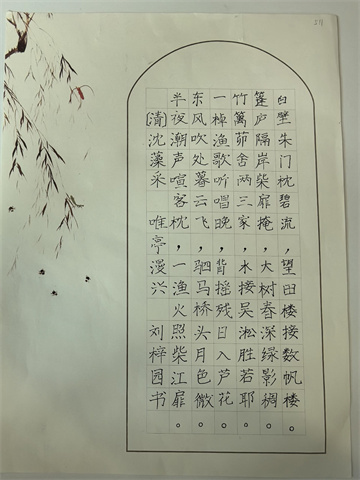 白壁朱门枕碧流，望田楼接数帆楼。
篷庐隔岸柴扉掩，大树春深绿影稠。
竹篱茆舍两三家，水接吴淞胜若耶。
一棹渔歌听唱晚，背摇残日入芦花。
东风吹处暮云飞，驷马桥头月色微。
半夜潮声喧客枕，一渔火照柴江扉。
[清]沈藻采 唯亭漫兴 刘梓园书